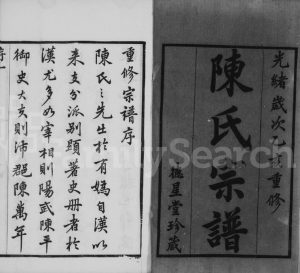 光緒歲次乙巳重修
陳氏宗譜
星堂珍藏
重修宗譜序
陳氏之先出於有媯自漢以
來支分派別顯著史冊者於
漢尤多如宰相則陽武陳平
御史大夫則沛郡陳萬年
序一
FamilySearch